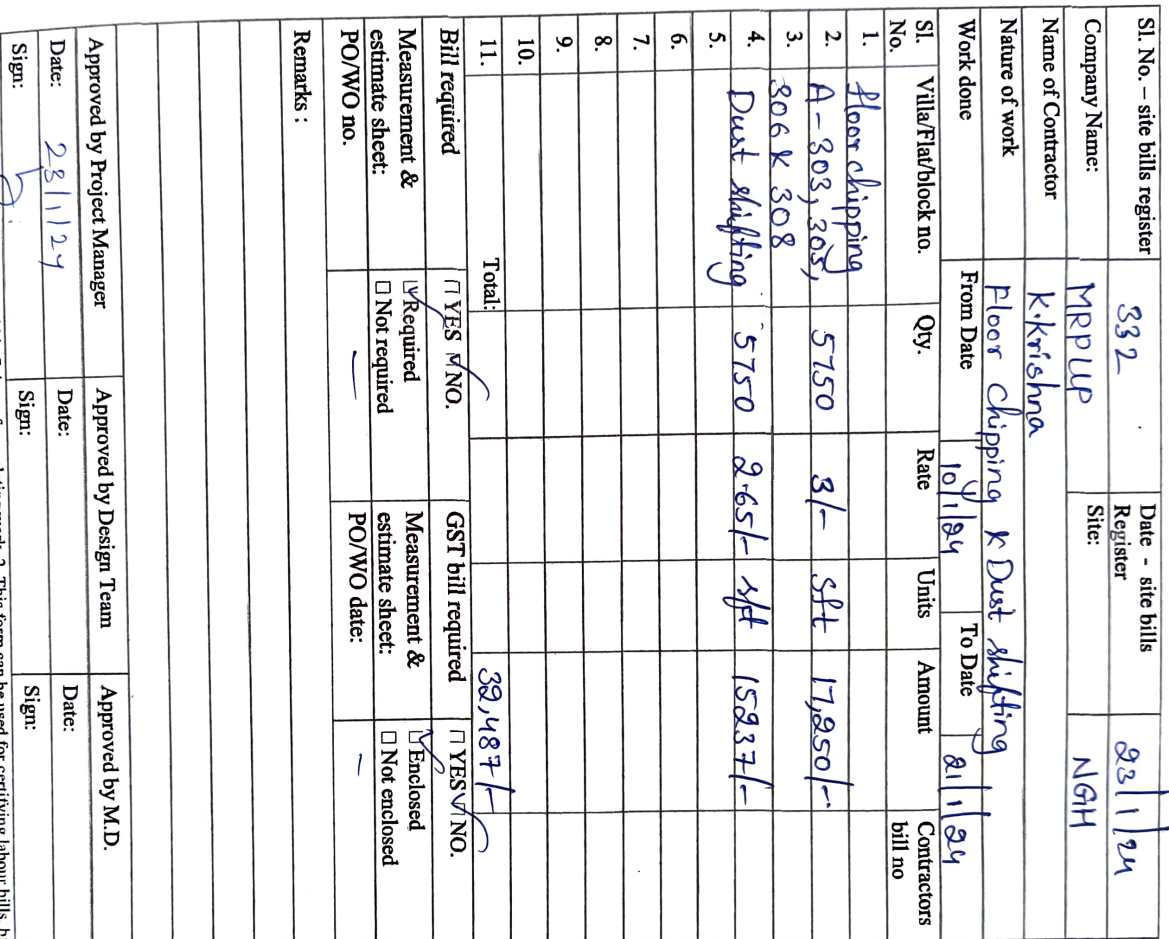 Sl. No. – site bills register 332 Date - site bills Register 23/1/24
Company Name: MRPLLP Site: NGH
Name of Contractor K.Krishna
Nature of work Floor chipping & Dust shifting
Work done From Date 10/1/24 To Date 21/1/24
Sl. No. Villa/Flat/block no. Qty. Rate Units Amount Contractors bill no
1. floor chipping
2. A-303, 305, 5750 3/- sft 17,250/-
3. 306 & 308
4. Dust shifting 5750 2.65/- sft 15237/-
5.
6.
7.
8.
9.
10.
11. Total: 32,487/-
Bill required ☐ YES ☑ NO. GST bill required ☐ YES ☑ NO.
Measurement & estimate sheet: ☑ Required ☐ Not required Measurement & estimate sheet: ☑ Enclosed ☐ Not enclosed
PO/WO no. — PO/WO date: —
Remarks :
Approved by Project Manager Approved by Design Team Approved by M.D.
Date: 23/1/24 Date: Date:
Sign: Sign: Sign:
2. This form can be used for certifying labour bills,